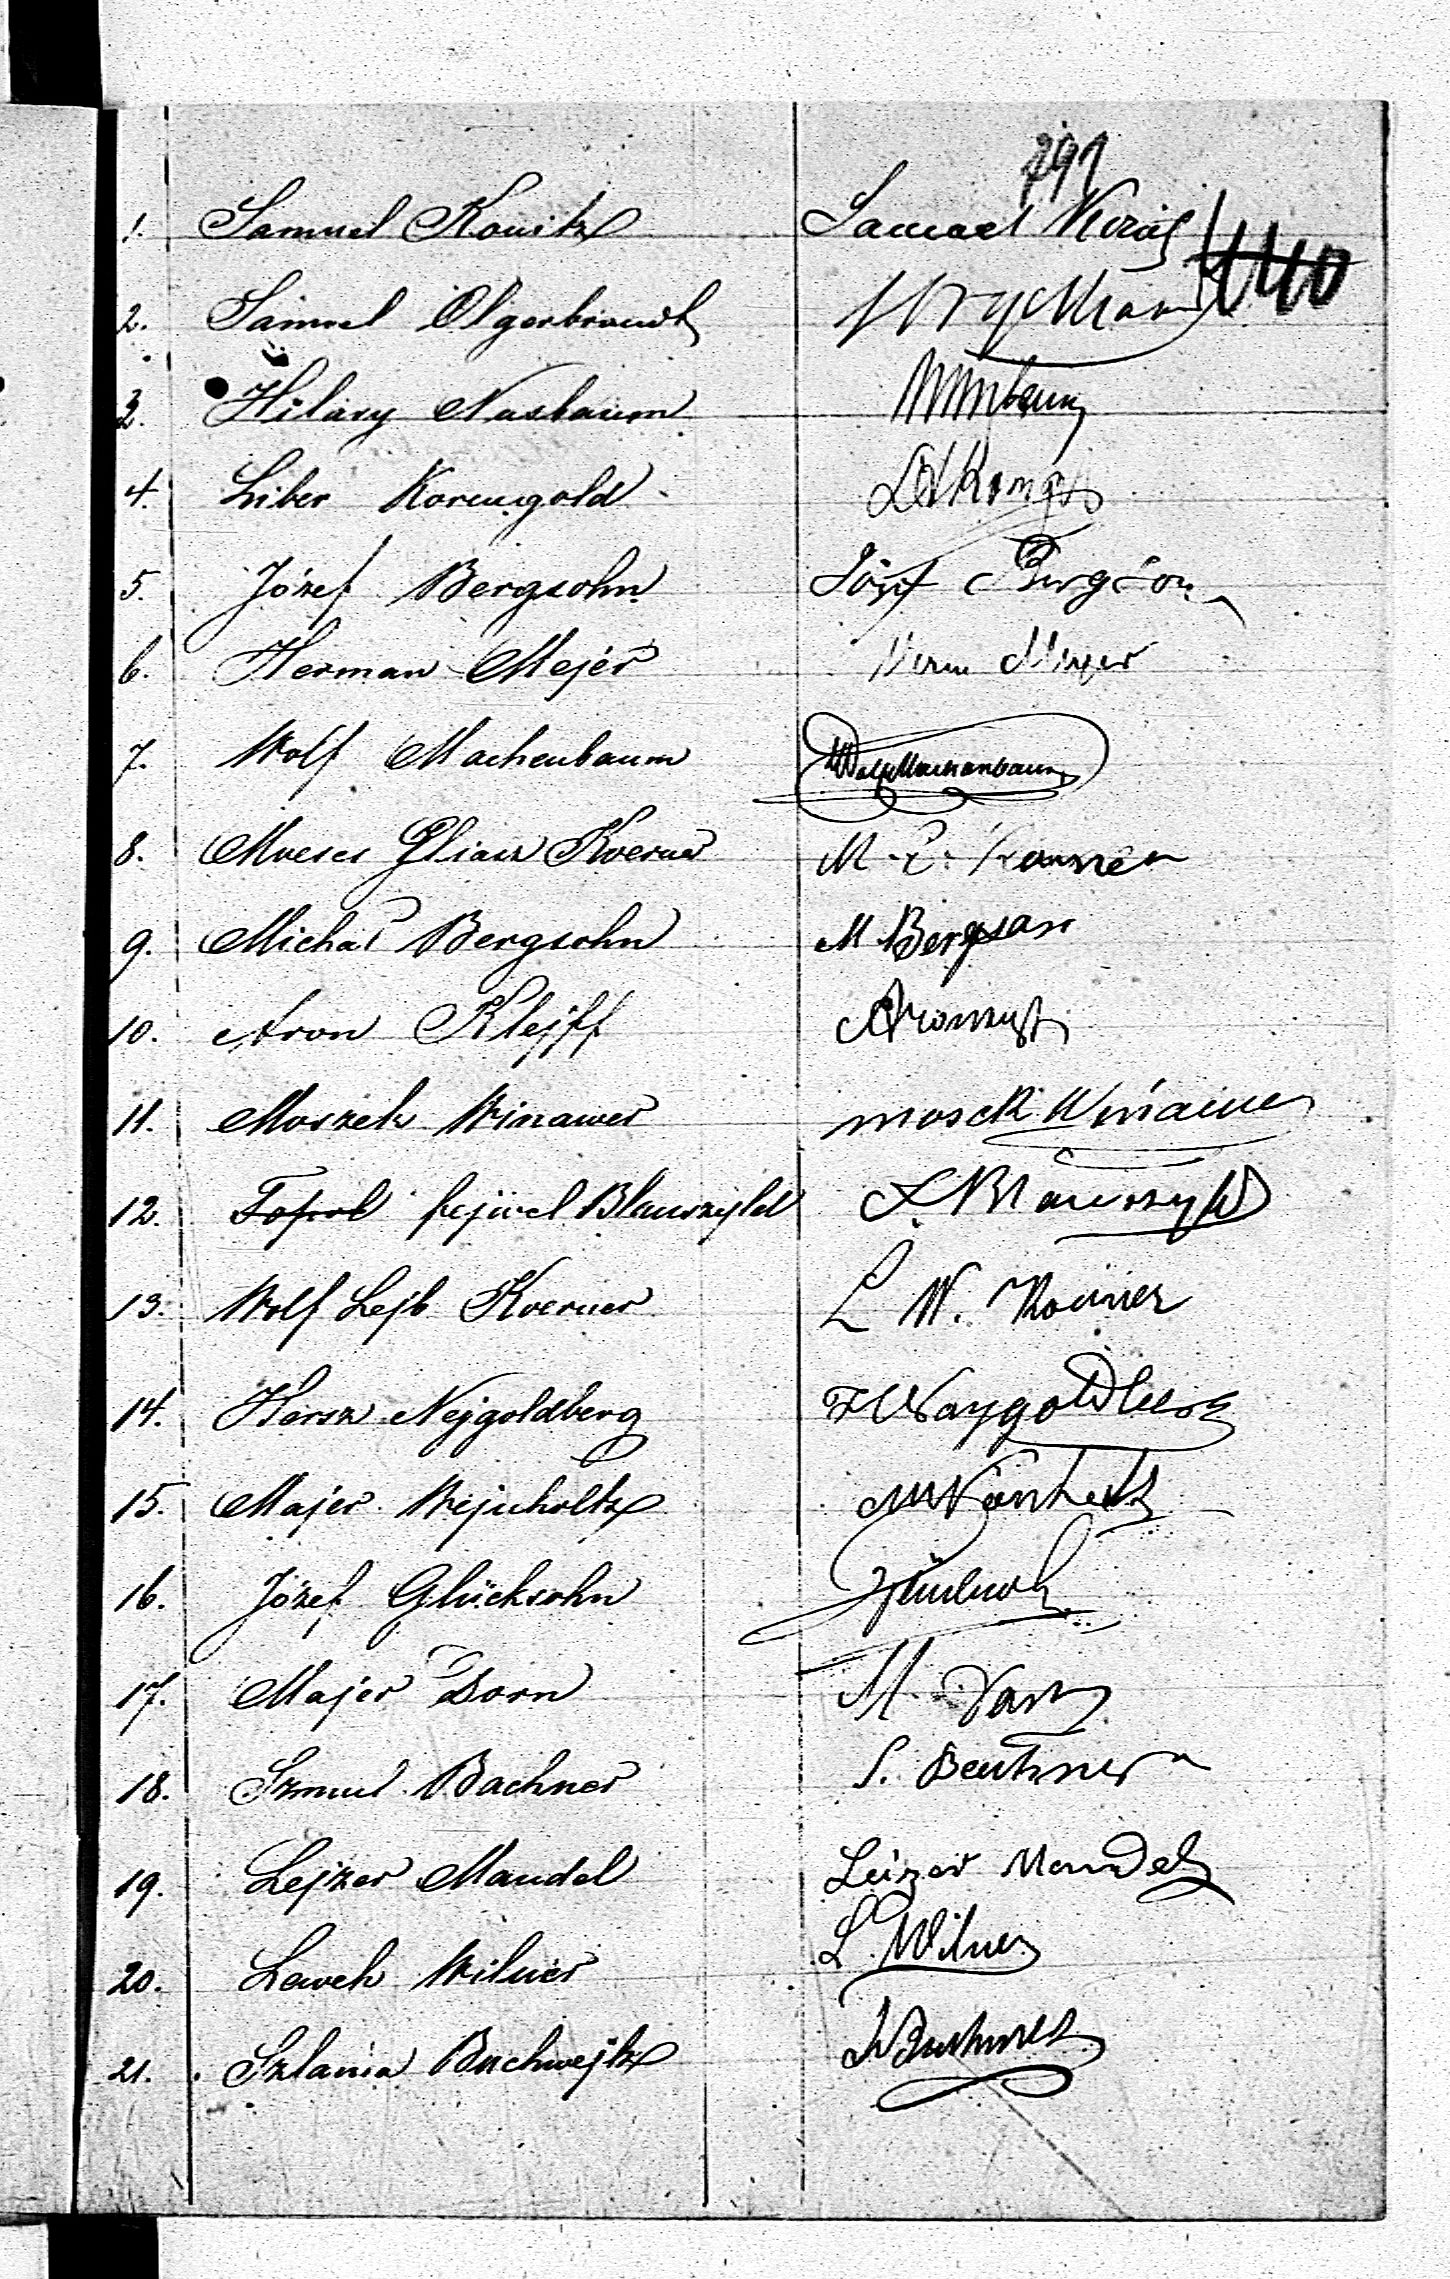 791
1. Samuel Konitz Samuel
440
2. Samuel Olgerbrandt
3. Hilary Nusbaum
4. Liber Korengold
5. Józef Bergsohn Józef Bergson
6. Herman Mejer Herm Meyer
7. Wolf Machenbaum Wolf Machenbaum
8. Moses Eliasz Koerner M. E. Koerner
9. Michał Bergsohn M Bergson
10. Aron Klejff
11. Moszek Winawer Mosek Winawer
12. Fajwel Blauszyld F. Blauszyld
13. Wolf Lejb Koerner L W. Körner
14. Hersz Nejgoldberg H Naygoldberg
15. Majer Wejnholtz
16. Józef Glücksohn
17. Majer Dorn M. Dorn
18. Szmul Bachner S.
19. Lejzer Mandel Leizer Mandel
20. Lewek Wilner L. Wilner
21. Szlama Buchwejtz